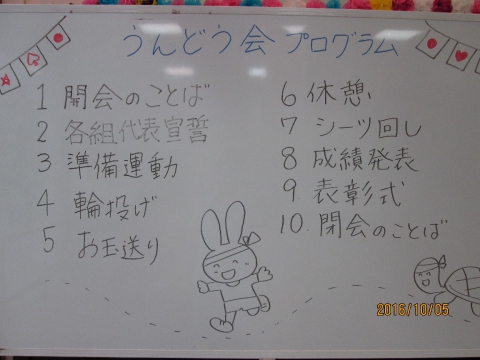 うんどう会 プログラム
1 開会のことば
2 各組代表宣誓
3 準備運動
4 輪投げ
5 お玉送り
6 休憩
7 シーツ回し
8 成績発表
9. 表彰式
10. 閉会のことば
2016/10/05